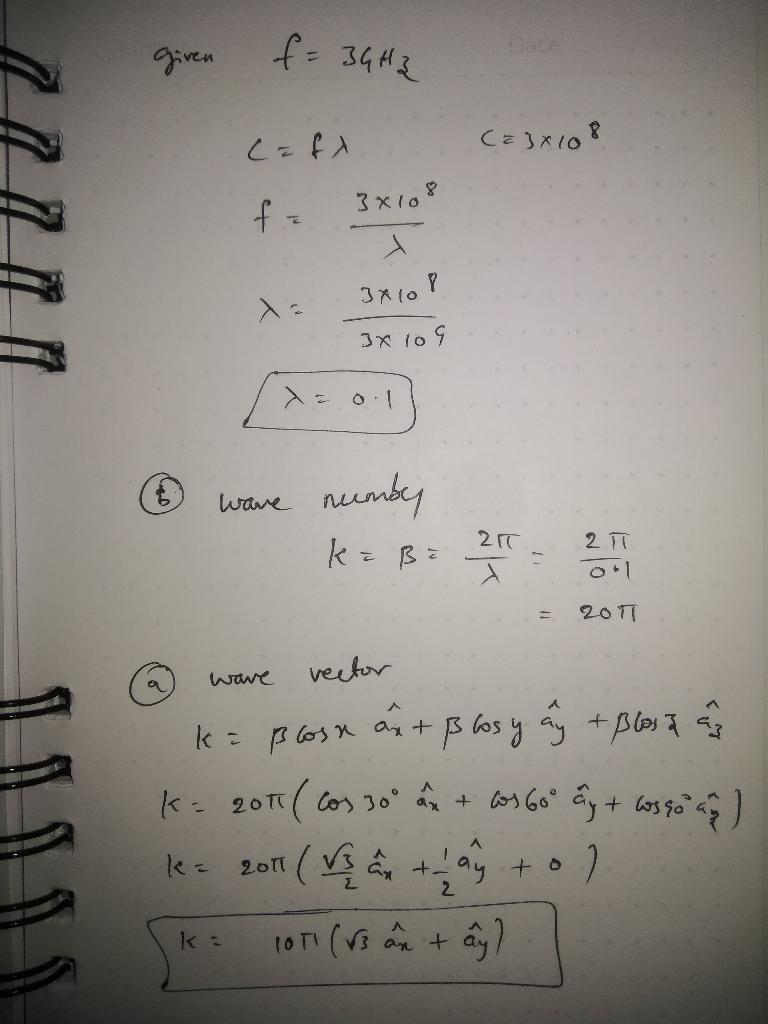 Date
given f = 3GHz
C = fλ C = 3×10⁸
f = 3×10⁸ / λ
λ = 3×10⁸ / 3×10⁹
λ = 0.1
ⓑ wave number
k = β = 2π / λ = 2π / 0.1
= 20π
ⓐ wave vector
k = β cos x âx + β cos y ây + β cos z âz
k = 20π ( cos 30° âx + cos 60° ây + cos 90° âz )
k = 20π ( √3/2 âx + 1/2 ây + 0 )
k = 10π ( √3 âx + ây )